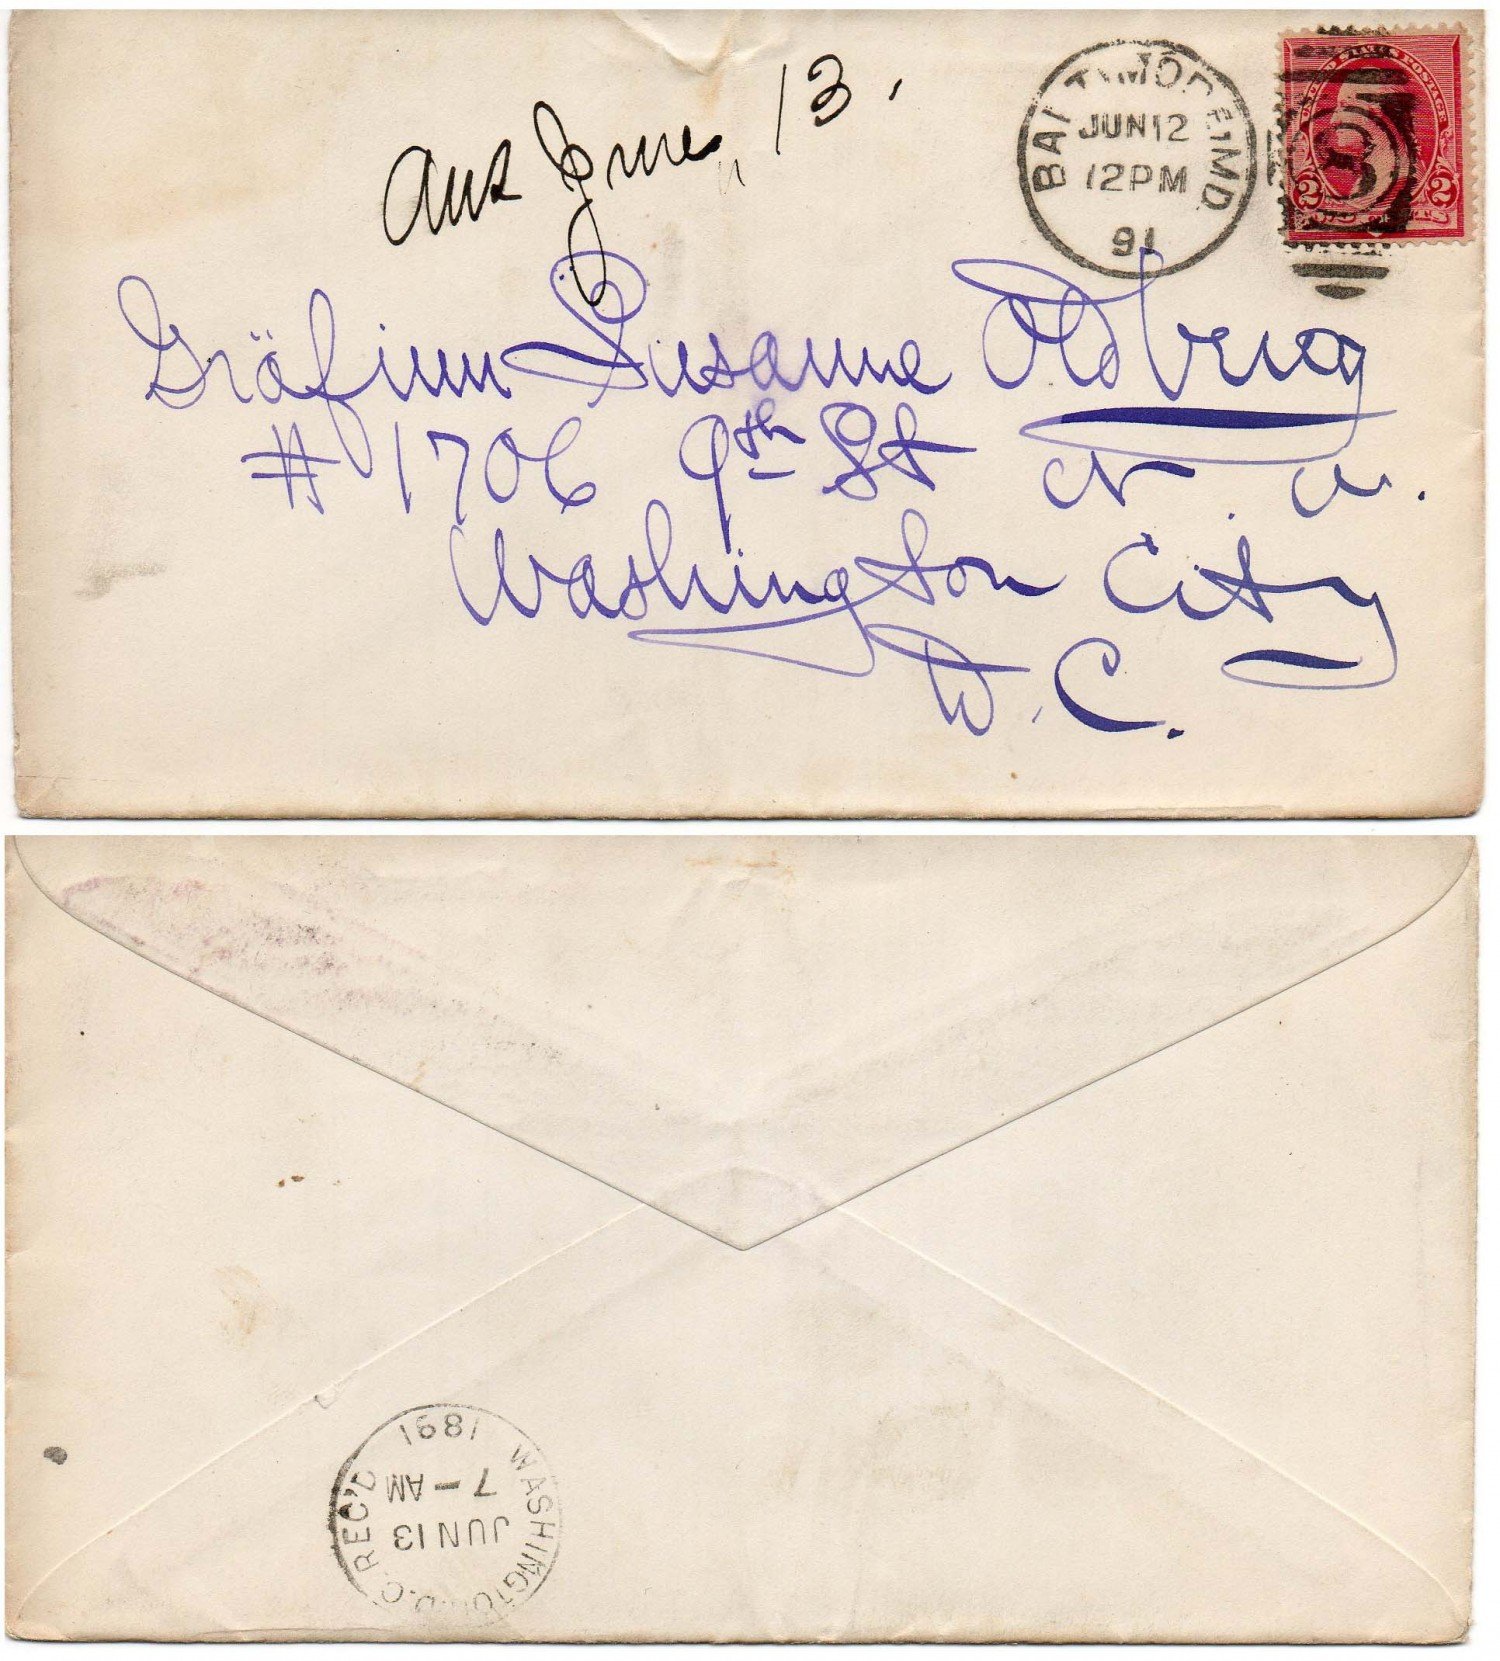 Ans June 13.
BALTIMORE, MD.
JUN 12
12 PM
91
UNITED STATES POSTAGE
2 2
Gräfinn Susanne Oldbrug
# 1706 9th St N. W.
Washington City
D. C.
WASHINGTON, D.C. REC'D
JUN 13
7 - AM
1891